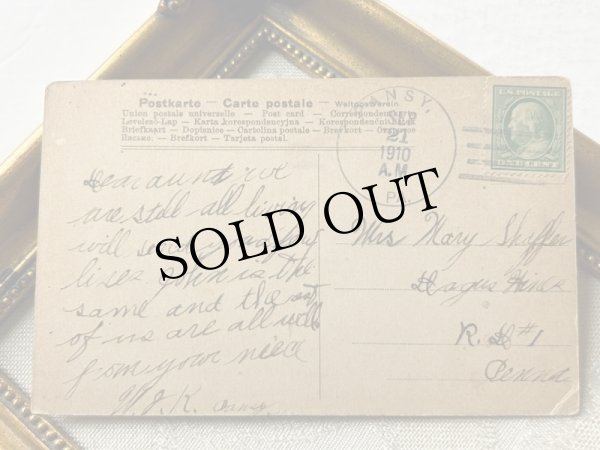 Postkarte — Carte postale — Weltpostverein
Union postale universelle — Post card — Correspondenzkarte
Levelező-Lap — Karta korespondencyjna — Korespondenční lístek
Briefkaart — Dopisnice — Cartolina postale — Brevkort —
— Brefkort — Tarjeta postal.
PANSY,
SEP
21
1910
A.M.
PA.
U.S. POSTAGE
ONE CENT
Dear aunt we
are still all living
will
is the
same and the
of us are all well
from your niece
SOLD OUT
Mrs Mary Shaffer
R. D #1
Penna